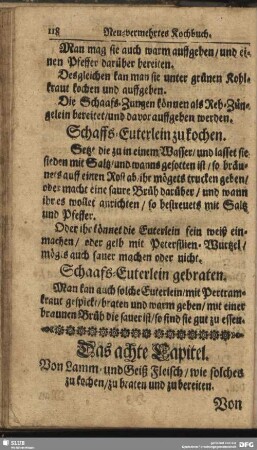 118 Neu-vermehrtes Kochbuch.
Man mag sie auch warm auffgeben / und ei-
nen Pfeffer darüber bereiten.
Desgleichen kan man sie unter grünen Kohl-
kraut kochen und auffgeben.
Die Schaafs-Zungen können als Reh-Zün-
gelein bereitet / und davor auffgeben werden.
Schaffs-Euterlein zu kochen.
Setz die zu in einem Wasser / und lasset sie
sieden mit Saltz / und wanns gesotten ist / so bräu-
nes auff einen Rost ab / ihr mögets trucken geben /
oder macht eine saure Brüh darüber / und wann
ihr es wollet anrichten / so bestreuets mit Saltz
und Pfeffer.
Oder ihr könnet die Euterlein fein weiß ein-
machen / oder gelb mit Petersilien-Wurtzel /
mögts auch sauer machen oder nicht.
Schaafs-Euterlein gebraten.
Man kan auch solche Euterlein / mit Pertram-
kraut gespickt / braten und warm geben / mit einer
braunen Brüh die sauer ist / so sind sie gut zu essen.
Das achte Capitel.
Von Lamm- und Geiß Fleisch / wie solches
zu kochen / zu braten und zu bereiten.
Von
SLUB
DFG